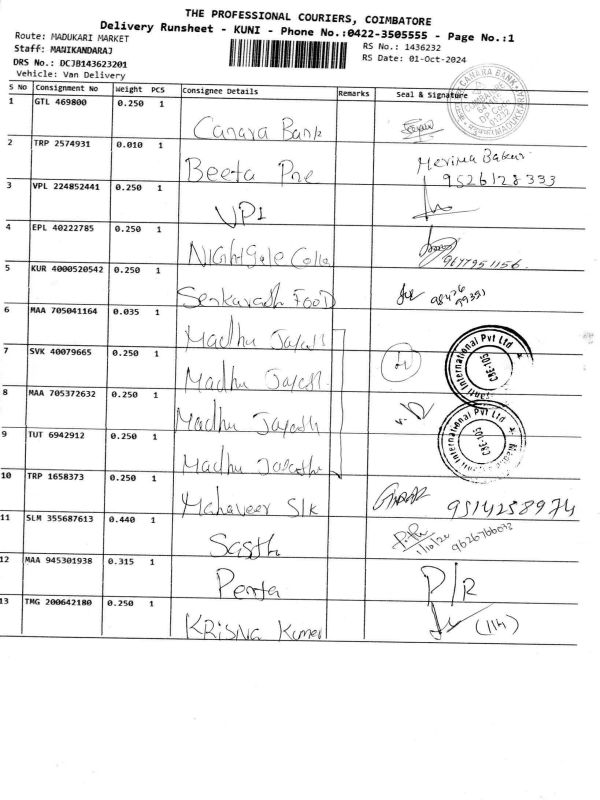 THE PROFESSIONAL COURIERS, COIMBATORE
Delivery Runsheet - KUNI - Phone No.:0422-3505555 - Page No.:1
Route: MADUKARI MARKET
Staff: MANIKANDARAJ
DRS No.: DCJB143623201
Vehicle: Van Delivery
RS No.: 1436232
RS Date: 01-Oct-2024
S No Consignment No Weight PCS Consignee Details Remarks Seal & Signature
CANARA BANK
1 GTL 469800 0.250 1 Canara Bank
2 TRP 2574931 0.010 1 Beeta Pre
9526128333
3 VPL 224852441 0.250 1 VPI
4 EPL 40222785 0.250 1 9677951156
5 KUR 4000520542 0.250 1 FOOD
6 MAA 705041164 0.035 1 Madhu Jayash
International Pvt Ltd
CBE-105
7 SVK 40079665 0.250 1 Madhu Jayash
8 MAA 705372632 0.250 1 Madhu Jayash
International Pvt Ltd
CBE-105
9 TUT 6942912 0.250 1 Madhu
10 TRP 1658373 0.250 1 Mahaveer Slk 9514258974
11 SLM 355687613 0.440 1 Sasth
1/10/24
12 MAA 945301938 0.315 1 Penta P/R
13 TMG 200642180 0.250 1 KRISNA Kumer